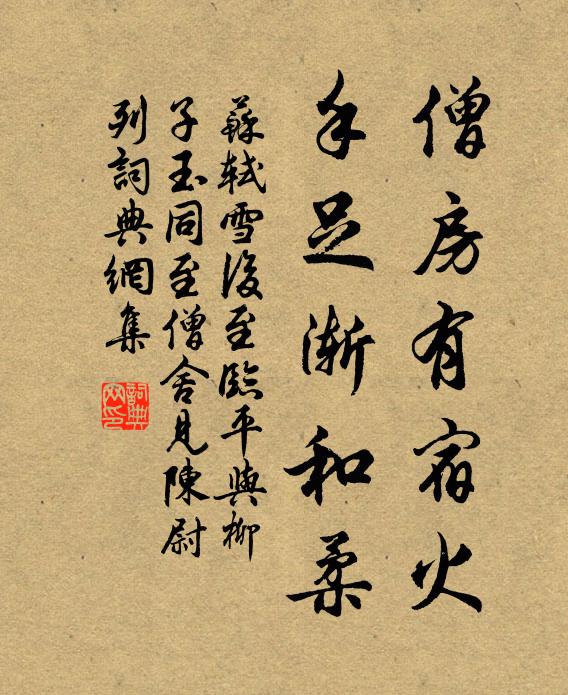 僧房有宿火
手足漸和柔
蘇軾雪後至臨平與柳
子玉同至僧舍見陳尉
列詞典網集
詞典
网印